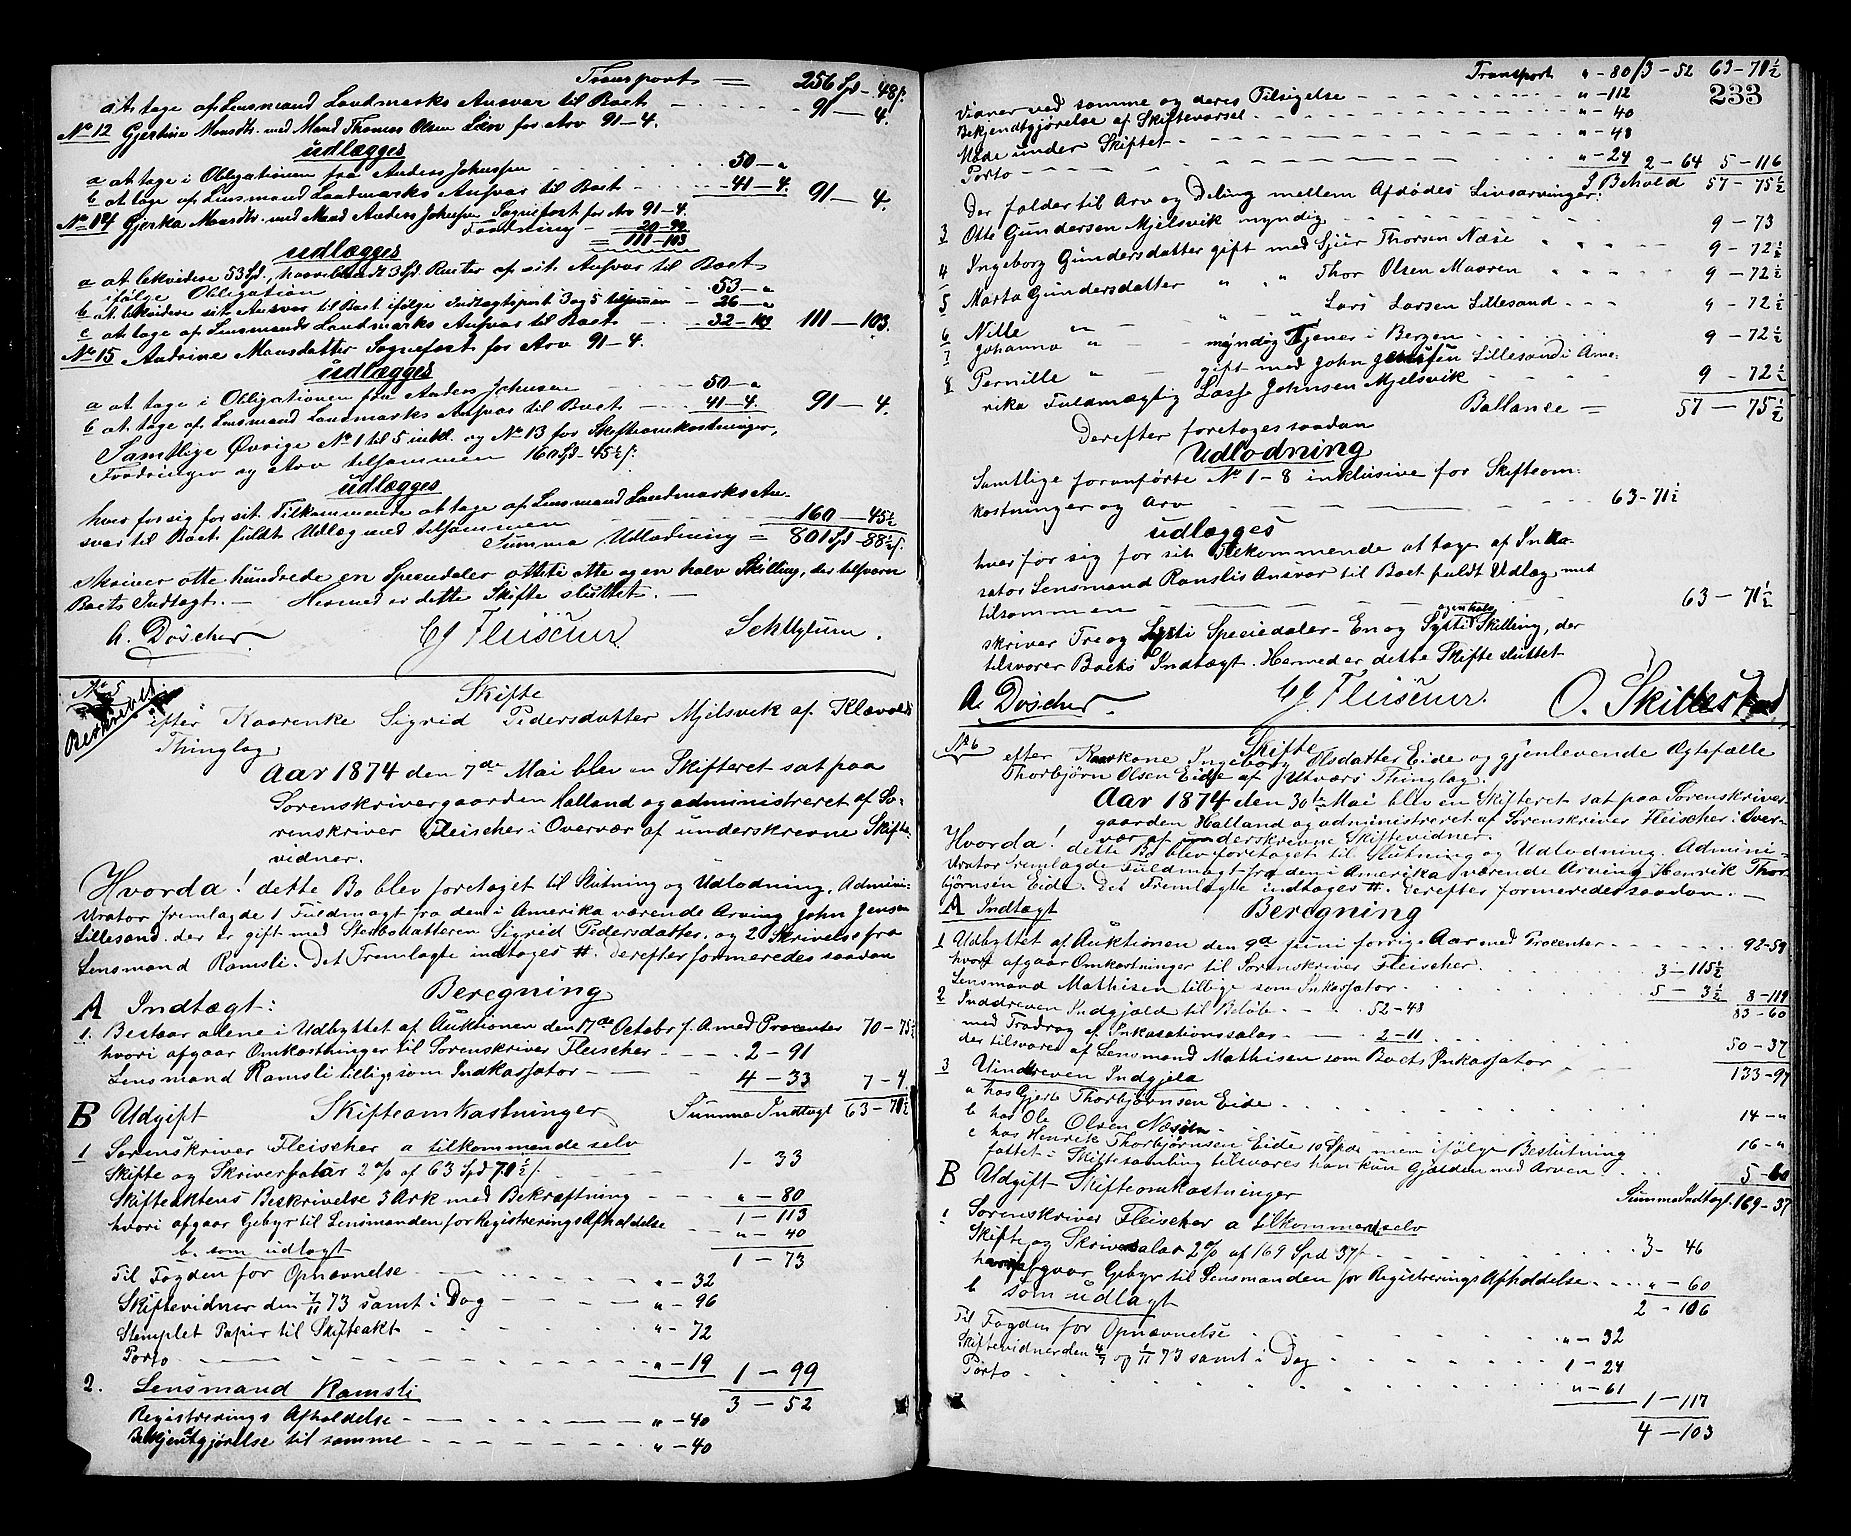 Transport = 256 Spd - 48 s.
at tage af Lensmand Landmarks Ansvar til Boet - - - - - 91 - 4.
No 12 Gjertine Monsdtr. med Mand Thomas Olsen Lien for Arv 91-4.
udlægges
a at tage i Obligationen fra Anders Johnsen - - - - 50 - "
b at tage af Lensmand Landmarks Ansvar til Boet - - - - 41 - 4. 91 - 4.
No 14 Gjerka Monsdtr. med Mand Anders Johnsen Sognefest for Arv 91-4.
Fordring - 20-99
= 111-103
udlægges
a at lekvidere 53 Spd, hvoriblandt 3 Spd Renter af sit Ansvar til Boet
ifølge Obligation - - - - 53 - "
b at likvidere sit Ansvar til Boet ifølge Indtægtspost 3 og 5 tilsammen - 26 - "
c at tage af Lensmands Landmarks Ansvar til Boet - - 32-103 111 - 103.
No 15 Andrine Monsdatter Sognefest for Arv 91-4.
udlægges
a at tage i Obligationen fra Anders Johnsen - - - - 50 - "
b at tage af Lensmand Landmarks Ansvar til Boet - - - 41-4. 91 - 4.
Samtlige Øvrige No 1 til 5 inkl. og No 13 for Skifteomkostninger,
Fordringer og Arv tilsammen 160 Spd - 45½ s.
udlægges
hver for sig for sit Tilkommende at tage af Lensmand Landmarks An-
svar til Boet fuldt Udlæg med tilsammen - - - - 160 - 45½
Summa Udlodning = 801 Spd - 88½ s.
skriver otte hundrede en Speciedaler otteti otte og en halv Skilling, der tilsvarer
Boets Indtægt. - Hermed er dette Skifte sluttet. -
A. Döscher CJ Fleischer
No 5
Beskrevet
Skifte
efter Kaarenke Sigrid Pedersdatter Mjelsvik af Klævolds
Thinglag
Aar 1874 den 7de Mai blev en Skifteret sat paa
Sorenskrivergaarden Halland og administreret af So-
renskriver Fleischer i Overvær af underskrevne Skifte-
vidner.
Hvorda! dette Bo blev foretaget til Slutning og Udlodning. Admini-
strator fremlagde 1 Fuldmagt fra den i Amerika værende Arving John Jensen
Lillesand, der er gift med Sterbodatteren Sigrid Pedersdatter, og 2 Skrivelse fra
Lensmand Ramsli. Det Fremlagte indtages #. derefter formeredes saadan
Beregning
A Indtægt:
1. Bestaar alene i Udbyttet af Auktionen den 17de Octobr f. A. med Procenter 70 - 75½
hvori afgaar Omkostninger til Sorenskriver Fleischer - - - - 2 - 91
Lensmand Ramsli tillige som Indkassator - - - 4 - 33 7 - 4
B Udgift Skifteomkostninger Summa Indtægt 63 - 71½
1 Sorenskriver Fleischer a tilkommende selv
Skifte og Skriversalær 2% af 63 Spd 71½ s. - - - - 1 - 33
Skifteaktens Beskrivelse 3 Ark med Bekræftning - - - - " - 80
1 - 113
hvori afgaar Gebyr til Lensmanden for Registrerings Afholdelse - " - 40
b. som udlagt 1 - 73
Til Fogden for Opnævnelse - - - - " - 32
Skiftevidner den 7/11 73 samt i Dag - - - - " - 96
Stemplet Papir til Skifteakt - - - - " - 72
Porto - - - - " - 19 1 - 99
2. Lensmand Ramsli 3 - 52
Registrerings Afholdelse - - - - " - 40
Bekjendtgjørelse til samme - - - - " - 40
Transport " - 80 / 3 - 52 63 - 71½
233
Vidner ved samme og deres Tilsigelse - - - - " - 112
Bekjendtgjørelse af Skiftevarsel - - - - " - 40
Møde under Skiftet - - - - " - 48
Porto - - - - " - 24 2 - 64 5 - 116
I Behold 57 - 75½
Der falder til Arv og Deling mellem Afdødes Livsarvinger:
3 Otto Gundersen Mjelsvik myndig - - - - 9 - 73
4 Ingeborg Gundersdatter gift med Gjur Thorsen Næse - - - 9 - 72½
5 Marta Gundersdatter " " Thor Olsen Maaren - - - 9 - 72½
6 Nille " - " - " Lars Larsen Lillesand - - - 9 - 72½
7 Johanna " - myndig Tjener i Bergen - - - 9 - 72½
8 Pernille " - gift med John Jensen Lillesand i Ame-
rika Fuldmægtig Lasse Johnsen Mjelsvik - - - 9 - 72½
Ballance = 57 - 75½
Derefter foretoges saadan
Udlodning
Samtlige foranførte No 1-8 inklusive for Skifteom-
kostninger og Arv - - - - 63 - 71½
udlægges
hver for sig for sit Tilkommende at tage af Inka-
sator Lensmand Ramslis Ansvar til Boet fuldt Udlæg med
tilsammen - - - - 63 - 71½
skriver Tre og Sexti Speciedaler - En og Sytti og en halv Skilling, der
tilsvarer Boets Indtægt. Hermed er dette Skifte sluttet
A. Döscher. CJ Fleischer. O. Skillestad
No 6
Skifte
efter Kaarkone Ingeborg Olsdatter Eide og gjenlevende Ægtefælle
Thorbjørn Olsen Eide af Utværs Thinglag.
Aar 1874 den 30te Mai blev en Skifteret sat paa Sorenskriver-
gaarden Halland og administreret af Sorenskriver Fleischer i Over-
vær af underskrevne Skiftevidner.
Hvorda! dette Bo blev foretaget til Slutning og Udlodning. Admini-
strator fremlagde Fuldmagt fra den i Amerika værende Arving Henrik Thor-
bjørnsen Eide. Det Fremlagte indtages #. derefter formeredes saadan. -
Beregning
A Indtægt
1 Udbyttet af Auktionen den 9de Juni forrige Aar med Procenter - - - 92-59
hvori afgaar Omkostninger til Sorenskriver Fleischer - - - 3 - 115½
Lensmand Mathisen tillige som Inkassator - - - 5 - 3½ 8 - 119
83 - 60
2 Inddreven Indgjæld til Beløb - - - 52 - 48
med Fradrag af Inkasationssalær - - - 2 - 11
der tilsvares af Lensmand Mathisen som Boets Inkassator - - - 50 - 37
133 - 97
3 Uinddreven Indgjeld
a hos Gjert Thorbjørnsen Eide - - - 14 - "
b hos Ole Olsen - - - 16 - "
c hos Henrik Thorbjørnsen Eide 10 Spd, men ifølge Beslutning
fattet i Skiftesamling tilsvares han kun Gjælden med Arven - - - 5 - 60
B Udgift Skifteomkostninger Summa Indtægt 169 - 37
1 Sorenskriver Fleischer a tilkommende selv
Skifte og Skriversalær 2% af 169 Spd 37 s. - - - 3 - 46
hvori afgaar Gebyr til Lensmanden for Registrerings Afholdelse - - - " - 60
b som udlagt 2 - 106
Til Fogden for Opnævnelse - - - " - 32
Skiftevidner den 4/7 og 1/11 73 samt i Dag - - - 1 - 24
Porto - - - " - 61 1 - 117
4 - 103